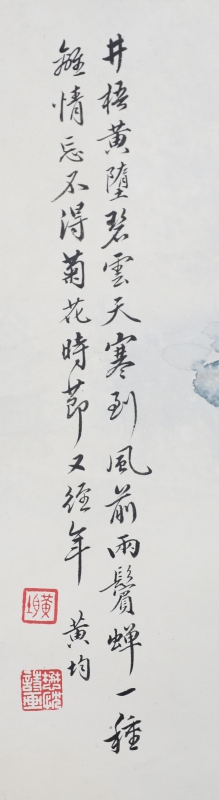 井梧黃墮碧雲天寒到風前兩鬢蟬一種
離情忘不得菊花時節又經年
黃均
黃均